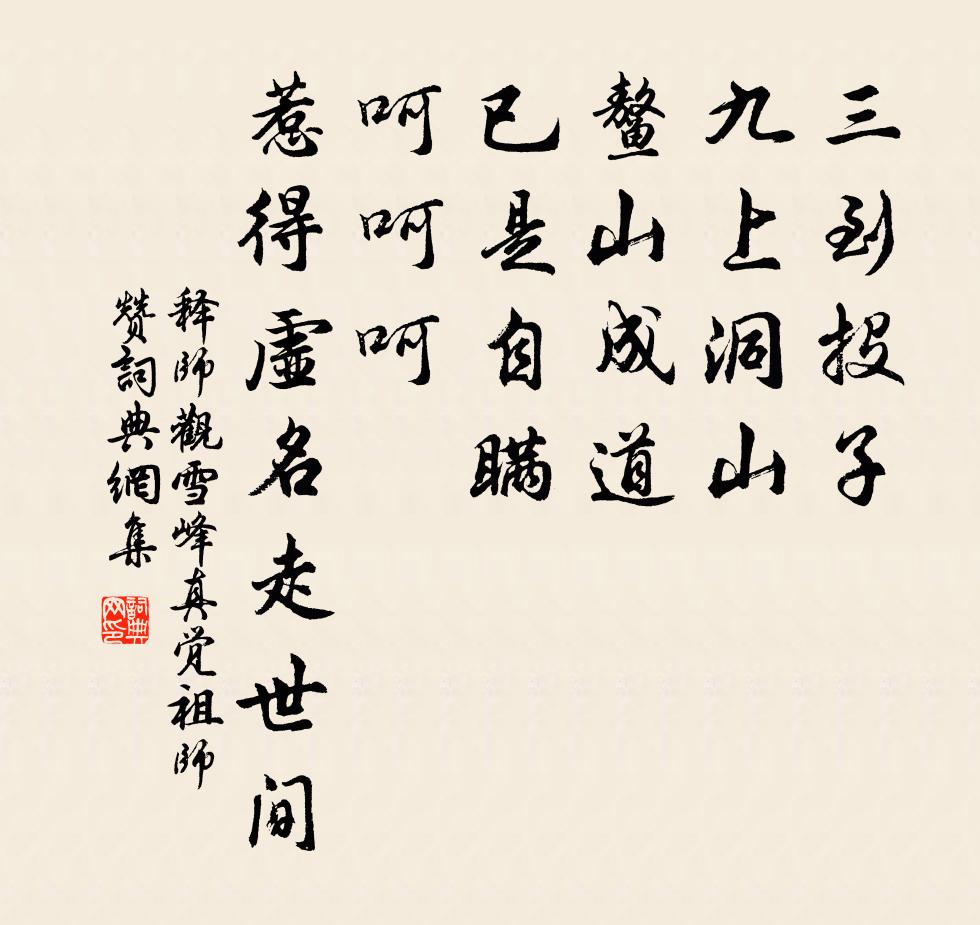 三到投子
九上洞山
鳌山成道
已是自瞒
呵呵呵
惹得虚名走世间
释师觀雪峰真觉祖师
赞詞典網集
詞典网印